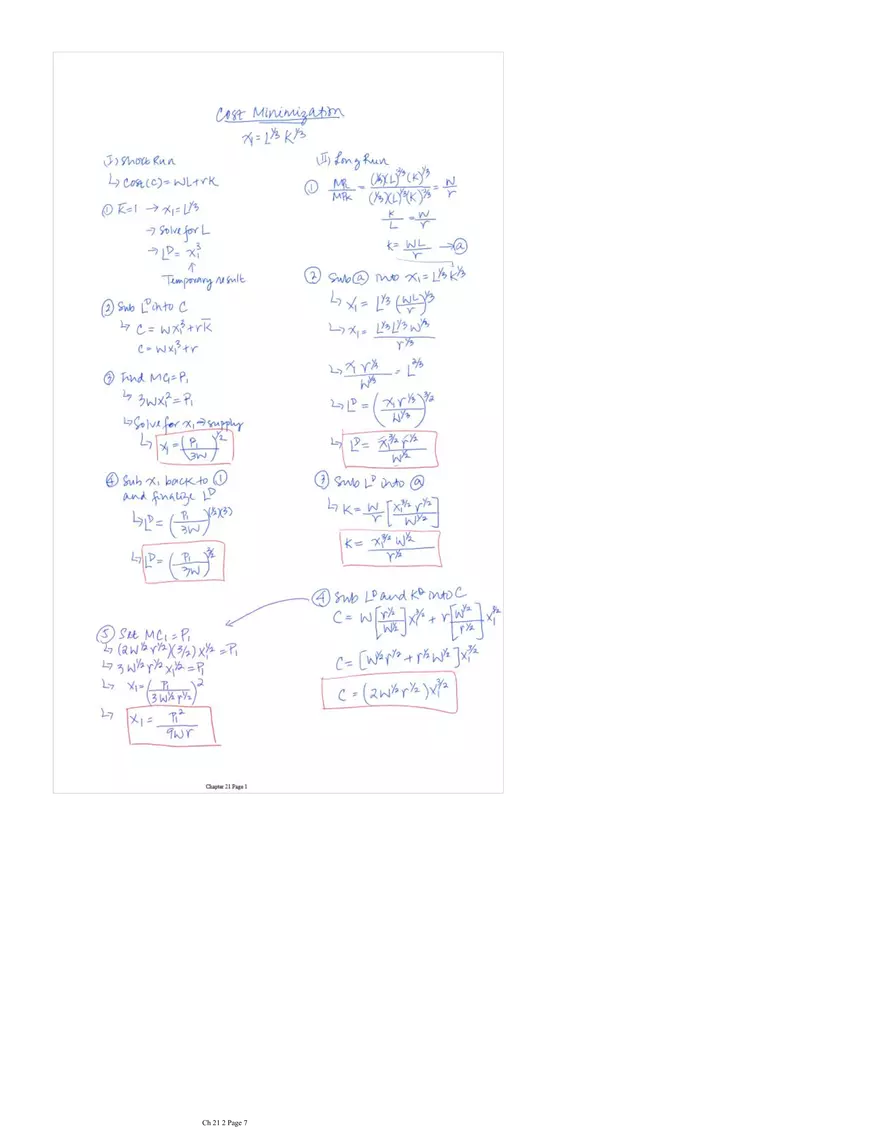 Cost Minimization
x₁ = L^1/3 K^1/3
I) Short Run
↳ Cost (C) = WL + rK
① K̄=1 → x₁ = L^1/3
→ Solve for L
→ L^D = x₁³
↑
Temporary result
② Sub L^D into C
↳ C = Wx₁³ + rK̄
C = Wx₁³ + r
③ Find MC₁ = P₁
↳ 3Wx₁² = P₁
↳ Solve for x₁ → supply
↳ x₁ = (P₁/3W)^1/2
④ Sub x₁ back to ①
and finalize L^D
↳ L^D = (P₁/3W)^(1/2)(3)
↳ L^D = (P₁/3W)^3/2
(II) Long Run
① MPL/MPK = (1/3)(L)^-2/3 (K)^1/3 / (1/3)(L)^1/3 (K)^-2/3 = W/r
K/L = W/r
K = WL/r → ⓐ
② Sub ⓐ into x₁ = L^1/3 K^1/3
↳ x₁ = L^1/3 (WL/r)^1/3
↳ x₁ = L^1/3 L^1/3 W^1/3 / r^1/3
↳ x₁ r^1/3 / W^1/3 = L^2/3
↳ L^D = (x₁ r^1/3 / W^1/3)^3/2
↳ L^D = x₁^3/2 r^1/2 / W^1/2
③ Sub L^D into ⓐ
↳ K = W/r [x₁^3/2 r^1/2 / W^1/2]
K = x₁^3/2 W^1/2 / r^1/2
④ Sub L^D and K^D into C
C = W [r^1/2 / W^1/2] x₁^3/2 + r [W^1/2 / r^1/2] x₁^3/2
C = [W^1/2 r^1/2 + r^1/2 W^1/2] x₁^3/2
C = (2W^1/2 r^1/2) x₁^3/2
⑤ Set MC₁ = P₁
↳ (2W^1/2 r^1/2)(3/2) x₁^1/2 = P₁
↳ 3W^1/2 r^1/2 x₁^1/2 = P₁
↳ x₁ = (P₁ / 3W^1/2 r^1/2)²
↳ x₁ = P₁² / 9Wr
Chapter 21 Page 1
Ch 21 2 Page 7